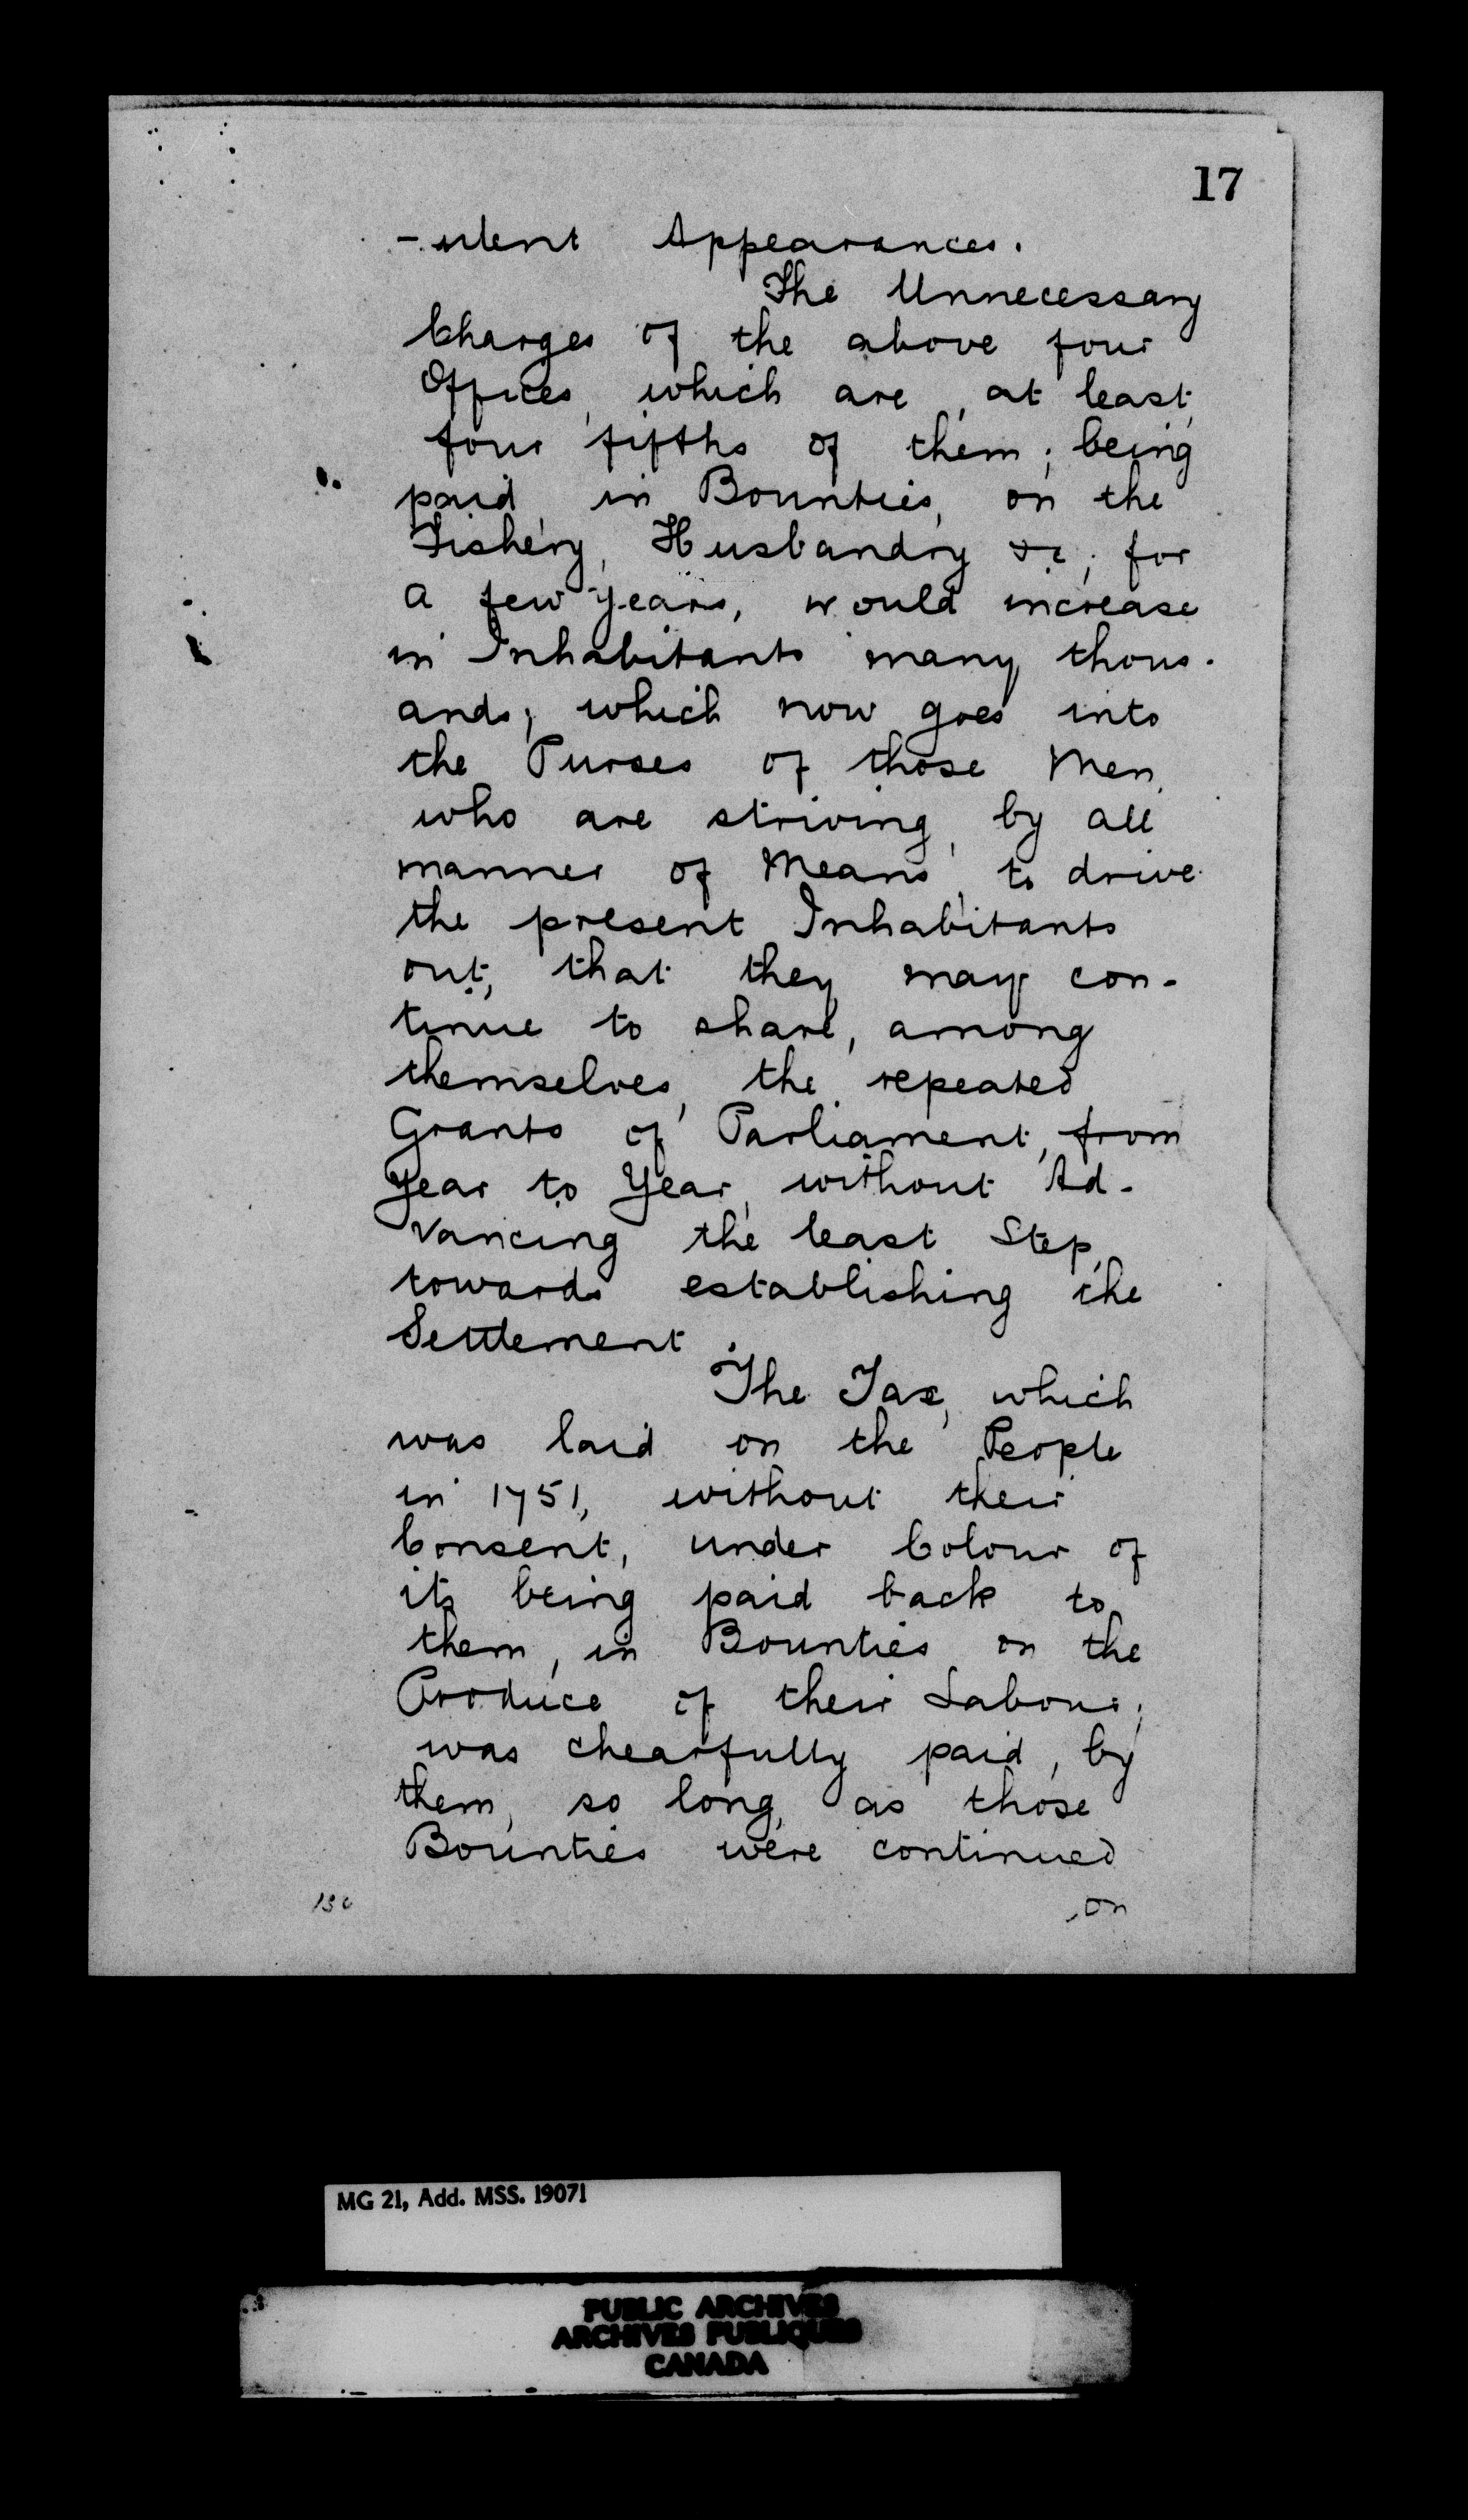 17
-ulent Appearances.
The Unnecessary
Charges of the above four
Offices, which are, at least,
four fifths of them; being
paid, in Bounties, on the
Fishery, Husbandry &c; for
a few years, would increase
in Inhabitants many thous-
ands; which now goes into
the Purses of those Men,
who are striving, by all
manner of Means, to drive
the present Inhabitants
out, that they may con-
tinue to share, among
themselves, the repeated
Grants of Parliament, from
Year to Year, without Ad-
vancing the least Step,
towards establishing the
Settlement.
The Tax, which
was laid on the People
in 1751, without their
Consent, under Colour of
its being paid back to
them, in Bounties on the
Produce of their Labour;
was chearfully paid, by
them, so long, as those
Bounties were continued
on
MG 21, Add. MSS. 19071
PUBLIC ARCHIVES
ARCHIVES PUBLIQUES
CANADA